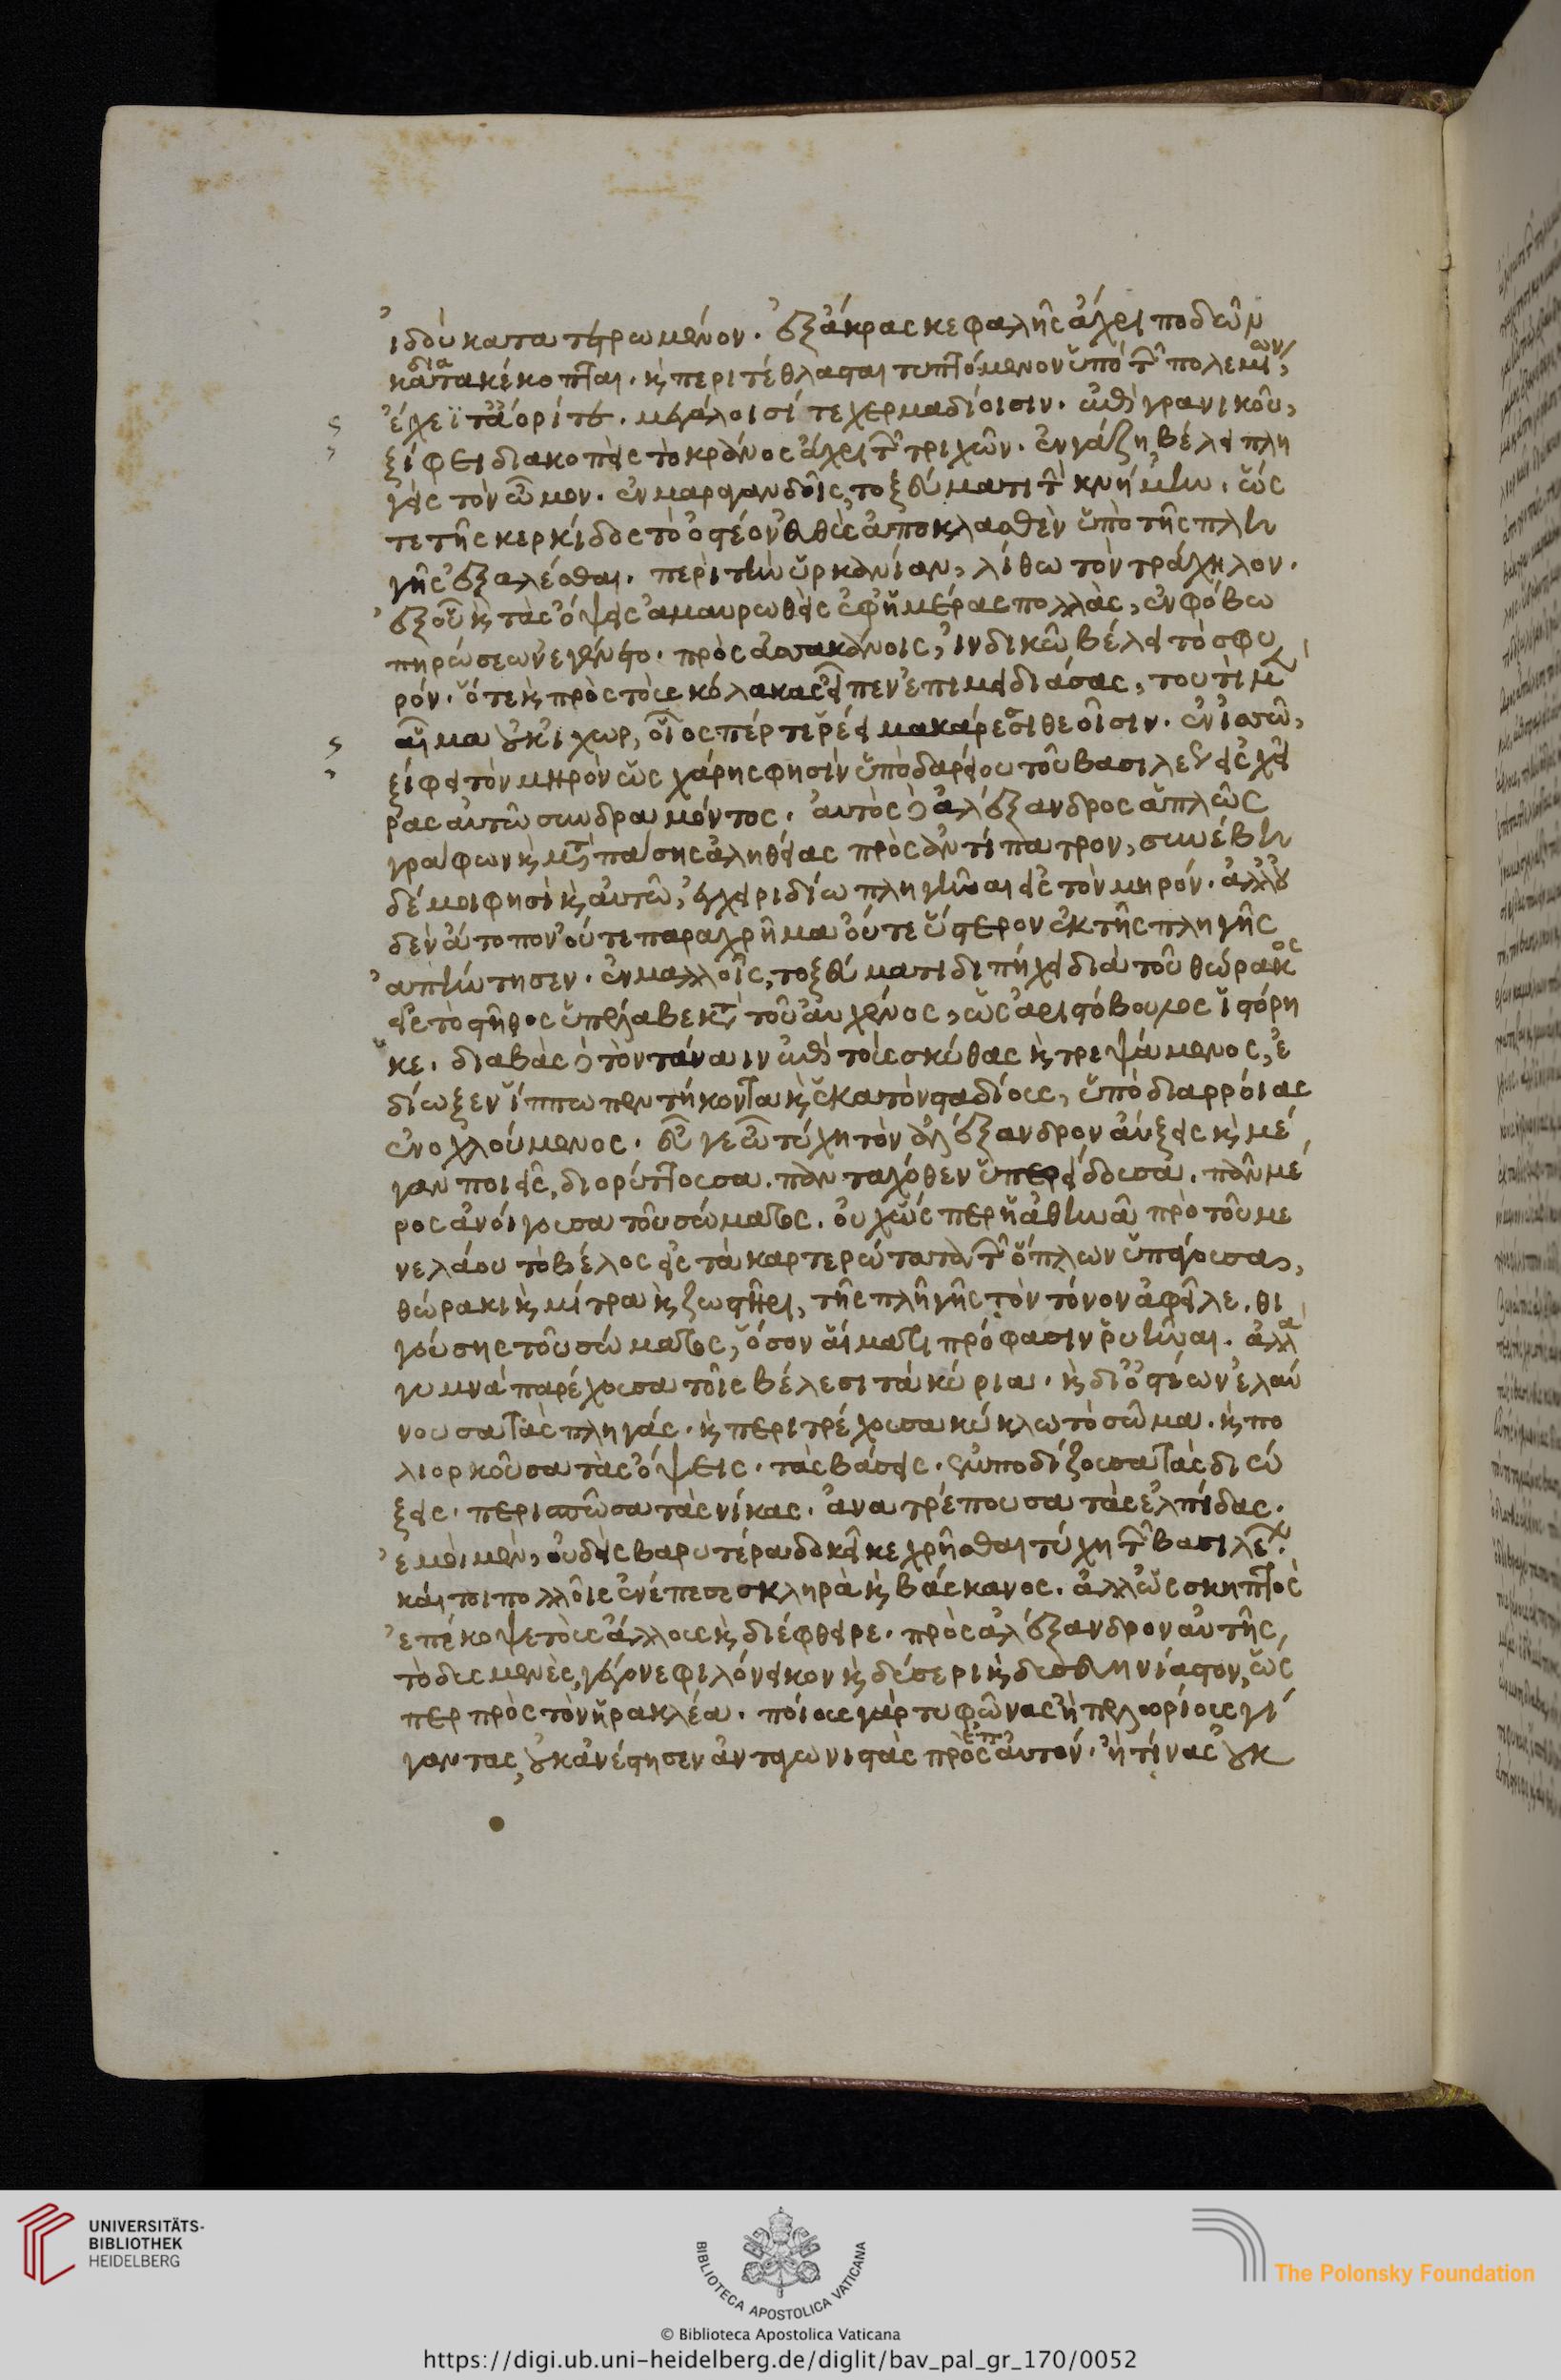 ἰδοὺ κατατετρωμένον. ἐξ ἄκρας κεφαλῆς ἄχρι ποδῶν
διακατακέκοπται. κ περιτέθλασται τυπτόμενον ὑπὸ τῶν πολεμίων,
ἔγχεΐ τ' ἄορί τε. μεγάλοισί τε χερμαδίοισιν. ἐπὶ γρανικοῦ,
ξίφει διακοπεὶς τὸ κράνος ἄχρι τῶν τριχῶν. ἐν γάζῃ, βέλει πλη
γεὶς τὸν ὦμον. ἐν μαραγανδοῖς, τοξεύματι τὴν κνήμην. ὥς
τε τῆς κερκίδος τὸ ὀστέον εὐθὺς ἀποκλασθὲν ὑπὸ τῆς πλη
γῆς ἐξαλέσθαι. περὶ τὴν ὑρκανίαν, λίθω τὸν τράχηλον.
ἐξ οὗ κ τὰς ὄψεις ἀμαυρωθεὶς ἐφ' ἡμέρας πολλὰς, ἐν φόβω
πηρώσεων ἐγένετο. πρὸς ἀσπακάνοις, ἰνδικῶ βέλει τὸ σφυ
ρόν. ὅτε κ πρὸς τοὺς κόλακας εἶπεν ἐπιμειδιάσας, τουτὶ μὲν
αἷμα οὐκ ἰχωρ, οἷος πέρ τε ῥέει μακάρεσσι θεοῖσιν. ἐν ἰσσῶ,
ξίφει τὸν μηρὸν ὡς χάρης φησὶν ὑπὸ δαρείου τοῦ βασιλέως εἰς χεῖ
ρας αὐτῶ συνδραμόντος. αὐτὸς δὲ ἀλέξανδρος ἁπλῶς
γράφων κ μετὰ πάσης ἀληθείας πρὸς ἀντίπατρον, συνέβη
δέ μοι φησὶ κ αὐτῶ, ἐγχειριδίω πληγῆναι εἰς τὸν μηρόν. ἀλλ' οὐ
δὲν ἄτοπον οὔτε παραχρῆμα οὔτε ὕστερον ἐκ τῆς πληγῆς
ἀπήντησεν. ἐν μαλλοῖς, τοξεύματι διπήχει διὰ τοῦ θώρακος
εἰς τὸ στῆθος ὑπέλαβε κατὰ τοῦ αὐχένος, ὡς ἀριστόβουλος ἱστόρη
κε. διαβὰς δὲ τὸν τάναιν ἐπὶ τοὺς σκύθας κ τρεψάμενος, ἐ
δίωξεν ἵππω πεντήκοντα κ ἑκατὸν σταδίους, ὑπὸ διαρροίας
ἐνοχλούμενος. εὖ γε ὦ τύχη τὸν ἀλέξανδρον αὔξεις κ μέ
γαν ποιεῖς, διορύττουσα. πανταχόθεν ὑπερείδουσα. πᾶν μέ
ρος ἀνοίγουσα τοῦ σώματος. οὐχ ὥς περ ἡ ἀθηνᾶ πρὸ τοῦ με
νελάου τὸ βέλος εἰς τὰ καρτερώτατα τῶν ὅπλων ὑπάγουσα,
θώρακι κ μίτρα κ ζωστῆρι, τῆς πληγῆς τὸν τόνον ἀφεῖλε. θι
γούσης τοῦ σώματος, ὅσον αἵματι πρόφασιν ῥυῆναι. ἀλλὰ
γυμνὰ παρέχουσα τοῖς βέλεσι τὰ κύρια. κ δι' ὀστέων ἐλαύ
νουσα τὰς πληγάς. κ περιτρέχουσα κύκλω τὸ σῶμα. κ πο
λιορκοῦσα τὰς ὄψεις. τὰς βάσεις. ἐμποδίζουσα τὰς διώ
ξεις. περισπῶσα τὰς νίκας. ἀνατρέπουσα τὰς ἐλπίδας.
ἐμοὶ μὲν, οὐδεὶς βαρυτέρα δοκεῖ κεχρῆσθαι τύχη τῶν βασιλέων.
καίτοι πολλοῖς ἐνέπεσε σκληρὰ κ βάσκανος. ἀλλ' ὡς σκηπτὸς
ἐπέκοψε τοὺς ἄλλους κ διέφθειρε. πρὸς ἀλέξανδρον αὐτῆς,
τὸ δυσμενὲς, γέγονε φιλόνεικον κ δύσερι κ δυσεκνίαστον, ὥς
περ πρὸς τὸν ἡρακλέα. ποίους γὰρ τυφῶνας ἢ πελωρίους γί
γαντας, οὐκ ἀνέστησεν ἀνταγωνιστὰς πρὸς ἐπ' αὐτόν. ἢ τίνας οὐκ
UNIVERSITÄTS-
BIBLIOTHEK
HEIDELBERG
BIBLIOTECA APOSTOLICA VATICANA
The Polonsky Foundation
© Biblioteca Apostolica Vaticana
https://digi.ub.uni-heidelberg.de/diglit/bav_pal_gr_170/0052